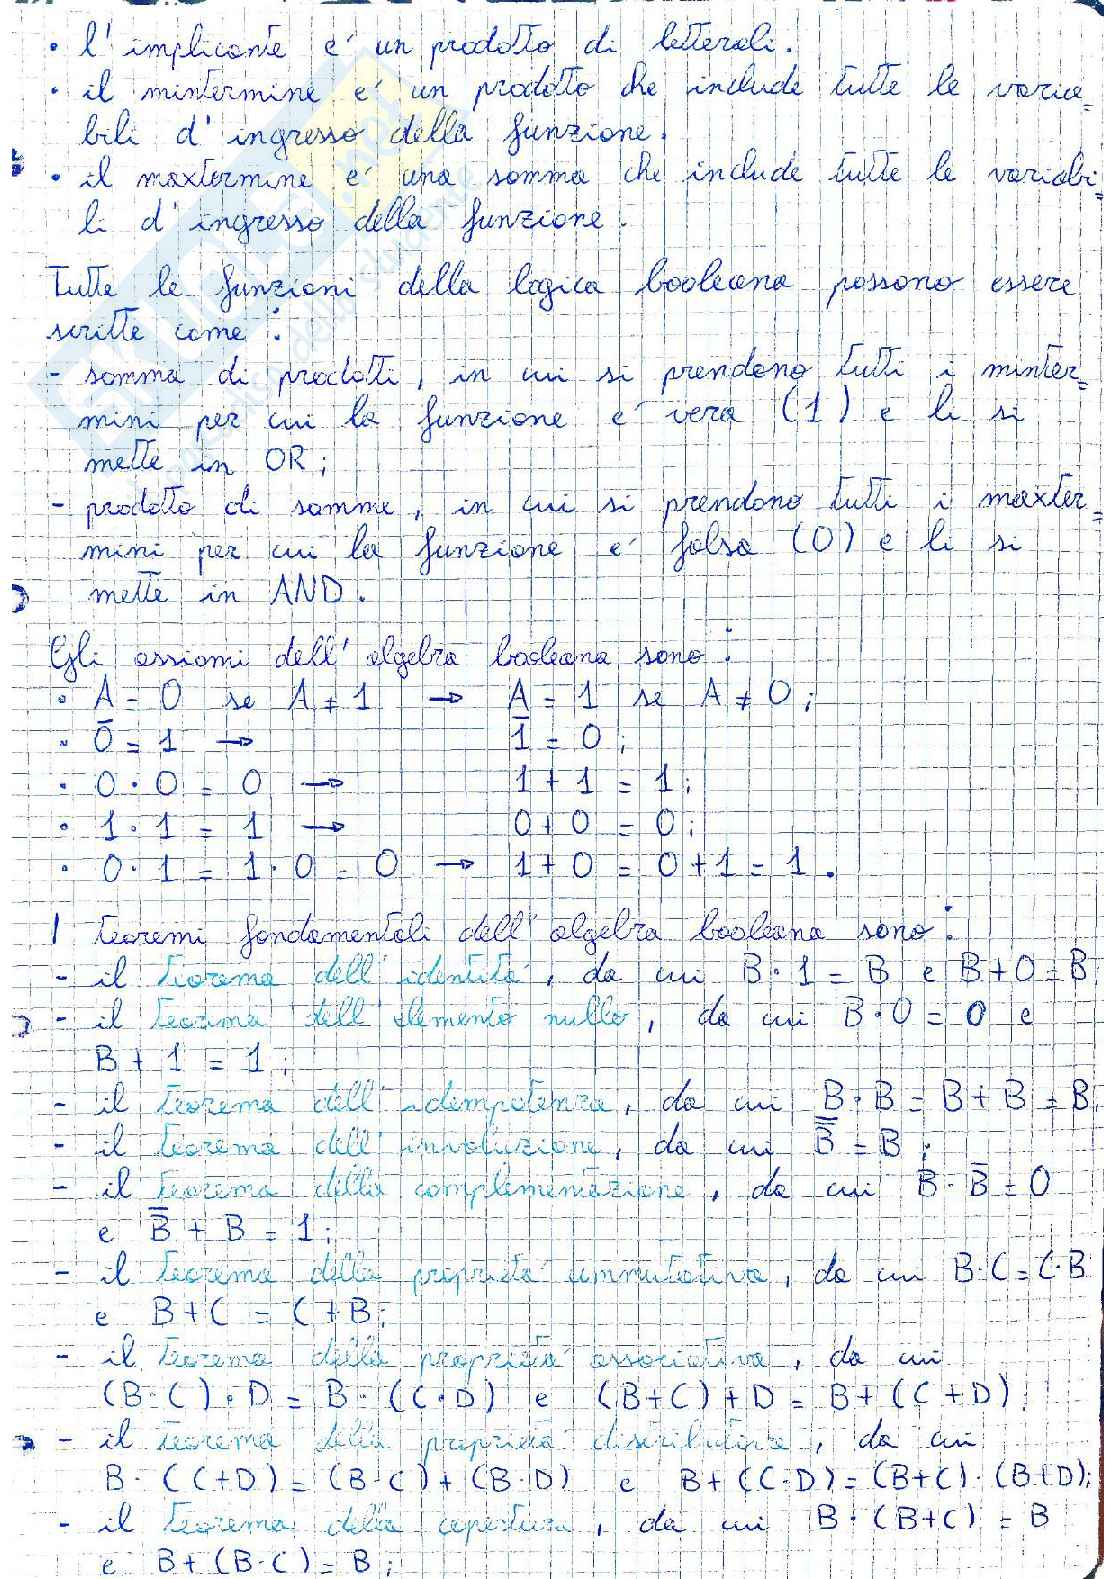 • l'implicante e' un prodotto di letterali.
• il mintermine e' un prodotto che include tutte le varia=
bili d'ingresso della funzione.
• il maxtermine e' una somma che include tutte le variabi=
li d'ingresso della funzione.
Tutte le funzioni della logica booleana possono essere
scritte come:
- somma di prodotti, in cui si prendono tutti i minter=
mini per cui la funzione e' vera (1) e li si
mette in OR;
- prodotto di somme, in cui si prendono tutti i maxter=
mini per cui la funzione e' falsa (0) e li si
mette in AND.
Gli assiomi dell'algebra booleana sono:
• A = 0 se A ≠ 1 → A = 1 se A ≠ 0;
• 0̅ = 1 → 1̅ = 0;
• 0 · 0 = 0 → 1 + 1 = 1;
• 1 · 1 = 1 → 0 + 0 = 0;
• 0 · 1 = 1 · 0 = 0 → 1 + 0 = 0 + 1 = 1.
I teoremi fondamentali dell'algebra booleana sono:
- il teorema dell'identita', da cui B · 1 = B e B + 0 = B
- il teorema dell'elemento nullo, da cui B · 0 = 0 e
B + 1 = 1;
- il teorema dell'idempotenza, da cui B · B = B + B = B
- il teorema dell'involuzione, da cui B̿ = B;
- il teorema della complementazione, da cui B · B̅ = 0
e B̅ + B = 1;
- il teorema della proprieta' commutativa, da cui B·C = C·B
e B + C = C + B;
- il teorema della proprieta' associativa, da cui
(B·C)·D = B·(C·D) e (B+C)+D = B+(C+D);
- il teorema della proprieta' distributiva, da cui
B·(C+D) = (B·C)+(B·D) e B+(C·D) = (B+C)·(B+D);
- il teorema della copertura, da cui B·(B+C) = B
e B+(B·C) = B;